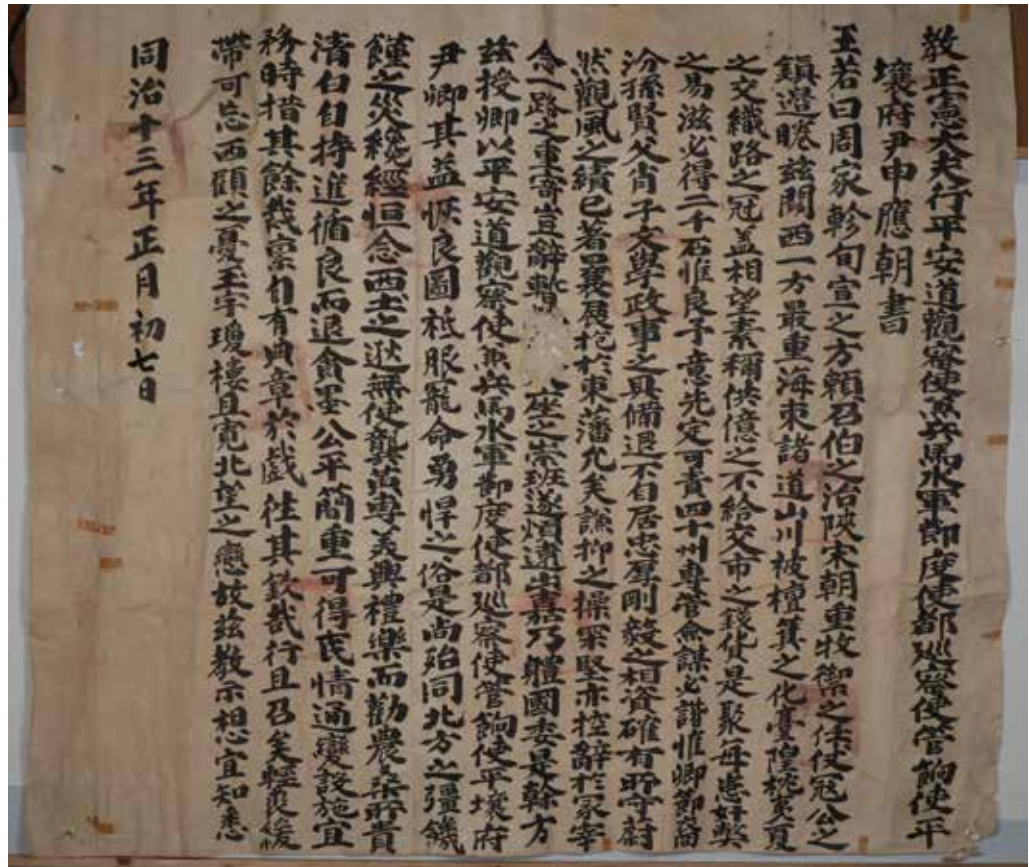 教正憲大夫行平安道觀察使兼兵馬水軍節度使都巡察使管餉使平
壤府尹申應朝書
王若曰周家軫旬宣之方賴召伯之治陝宋朝重牧禦之任使寇公之
鎮邊睠玆關西一方最重海東諸道山川被檀箕之化臺隍枕夷夏
之交織路之冠盖相望素稱供億之不給交市之錢貨是聚每患奸弊
之易滋必得二千石惟良予意先定可責四十州專管僉謀必諧惟卿節
汾孫賢父肖子文學政事之具備退不自居忠厚剛毅之相資確有所守蔚
然觀風之績已著曩展抱於東藩允矣謙抑之操寀堅亦控辭於冢宰
念一路之重寄豈辭暫 座之崇班遂煩遄出嘉乃體國委是榦方
玆授卿以平安道觀察使兼兵馬水軍節度使都巡察使管餉使平壤府
尹卿其益恢良圖祗服寵命勇悍之俗是尚殆同北方之彊饑
饉之災纔經恒念西土之逖無使龔黃專美興禮樂而勸農桑所貴
清白自持進循良而退貪墨公平簡重可得民情通變設施宜
務時措其餘裁稟自有典章於戲往其欽哉行且召矣輕裘緩
帶可忘西顧之憂玉宇瓊樓且寬北望之戀故玆教示想宜知悉
同治十三年正月初七日